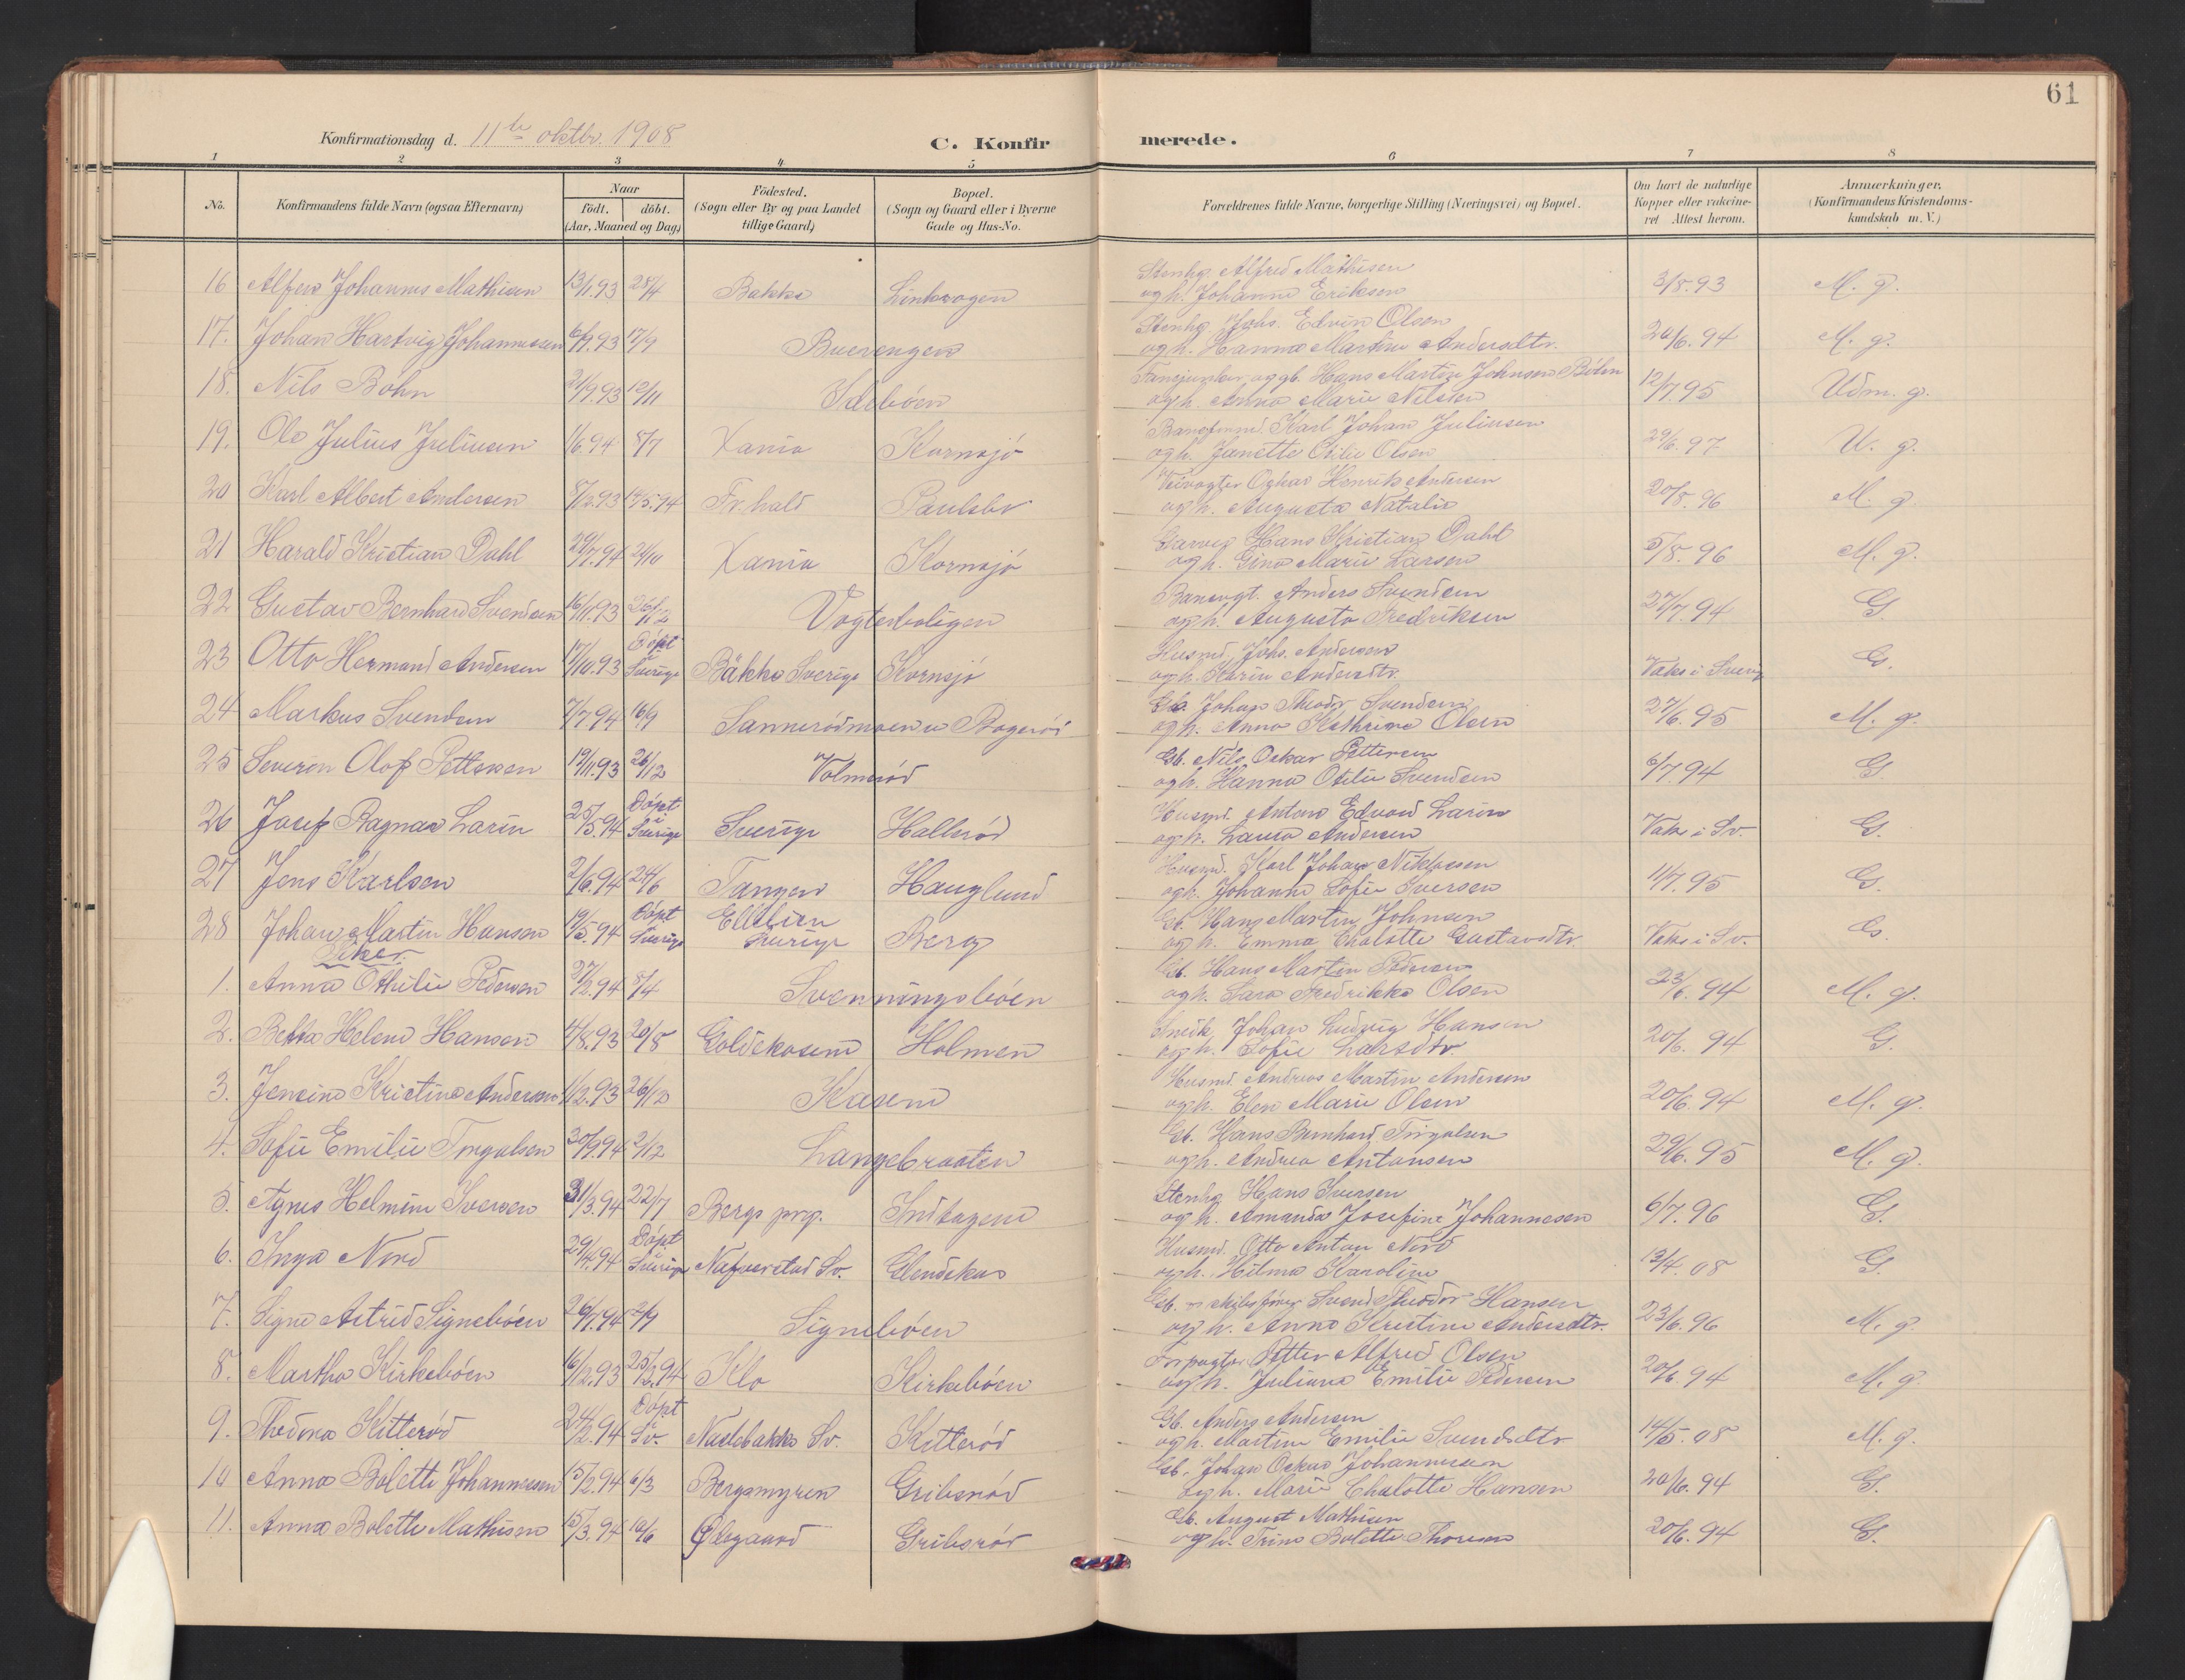 61
Konfirmationsdag d. 11te oktbr. 1908
C. Konfirmerede.
1 2 3 4 5 6 7 8
No.
Konfirmandens fulde Navn (ogsaa Efternavn)
Naar
födt. döbt.
(Aar, Maaned og Dag)
Födested.
(Sogn eller By og paa Landet
tillige Gaard)
Bopæl.
(Sogn og Gaard eller i Byerne
Gade og Hus-No.
Forældrenes fulde Navne, borgerlige Stilling (Næringsvei) og Bopæl.
Om havt de naturlige
Kopper eller vaccine-
ret Attest herom.
Anmærkninger.
(Konfirmandens Kristendoms-
kundskab m. V.)
Stenhg. Alfred Mathisen
16 Alfred Johannes Mathisen 13/1.93 28/4 Bakke og h. Johanne Eriksen 3/8.93 M. g.
Stenhg. Johs. Edvin Olsen
17. Johan Hartvig Johannessen 6/9.93 17/9 Buerengen og h. Hanna Martine Andersdtr. 20/6.94 M. g.
Hans Martin Johnsen Böhn
18. Nils Bohn 21/9.93 12/11 Ideböen og h. Anna Marie Nilsen 12/7.95 Udm. g.
Karl Johan Juliusen
19. Ole Julius Juliusen 1/6.94 8/7 Xania Kornsjö og h. Janette Otilie Olsen 29/6.97 U. g.
Veivogter Oskar Henrik Andersen
20 Karl Albert Andersen 8/12.93 14/5.94 Fr.hald Paulsbo og h. Augusta Natalie 20/8.96 M. g.
Garver Hans Kristian Dahl
21 Harald Kristian Dahl 29/7.94 21/10 Xania Kornsjö og h. Gina Marie Larsen 5/8.96 M. g.
Banevgt. Anders Svendsen
22 Gustav Bernhard Svendsen 16/11.93 26/12 Vogterboligen og h. Augusta Fredriksen 27/7.94 G.
Döpt
Husmd. Johs. Andersen
23 Otto Hermand Andersen 17/10.93 i Sverige Bäkke Sverige Kornsjö og h. Karin Andersdtr. Vaks i Sverig G.
Gb. Johan Theodr. Svendsen
24 Markus Svendsen 7/7.94 16/9 Sannerödmoen u Bogeröd og h. Anna Kathrine Olsen 27/6.95 M. g.
Gb. Nils Oskar Pettersen
25 Severin Olof Pettersen 19/11.93 26/12 Volmeröd og h. Hanna Otilie Svendsen 6/7.94 G.
Döpt
Husmd. Antono Edvard Larin
26 Josef Ragnar Larin 25/5.94 i Sverige Sverige Hallsröd og h. Laura Andersen Vaks i Sv. G.
Husmd. Karl Johan Niklasen
27 Jens Karlsen 2/6.94 24/6 Tangen Hauglund og h. Johanne Sofie Iversen 11/7.95 G.
Döpt
Gb. Hans Martin Johnsen
28 Johan Martin Hansen 19/5.94 Sverige Sverige Berg og h. Emma Chalotte Gustavsdtr. Vaks i Sv. G.
Piker
Gb. Hans Martin Pedersen
1. Anna Othilie Pedersen 27/2.94 8/4 Svenningsböen og h. Sara Fredrikke Olsen 23/6.94 M. g.
Snedk. Johan Ludvig Hansen
2. Betta Helene Hansen 4/8.93 20/8 Goldekasene Holmen og h. Sofie Larsdtr. 20/6.94 G.
Husmd. Andreas Martin Andersen
3. Jensine Kristine Andersen 1/12.93 26/12 Kasene og h. Elen Marie Olsen 20/6.94 M. g.
Gb. Hans Bernhard Torgalsen
4. Sofie Emilie Torgalsen 30/9.94 2/12 Langebraaten og h. Andrea Antonsen 29/6.95 M. g.
Stenhg. Hans Iversen
5. Agnes Helmine Iversen 31/3.94 22/7 Bergs prg. Indtagene og h. Amanda Josefine Johannesen 6/7.96 G.
Döpt
Husmd. Otto Anton Nord
6. Inga Nord 29/4.94 i Sverige Nafverstad Sv. Glendekas og h. Hilma Karoline 13/4.08 G.
Svend Theodor Hansen
7. Signe Astrid Signeböen 26/7.94 2/9 Signeböen og h. Anna Kristine Andersdtr. 23/6.96 M. g.
Forpagter Petter Alfred Olsen
8. Martha Kirkeböen 16/12.93 25/2.94 Klo Kirkeböen og h. Juliane Emilie Pedersen 20/6.94 M. g.
Döpt
Gb. Anders Andersen
9. Thedora Kitteröd 24/2.94 i Sv. Naslebakke Sv. Kitteröd og h. Martine Emilie Svendsdtr. 14/5.08 M. g.
Gb. Johan Oskar Johannessen
10 Anna Bolette Johannessen 15/2.94 6/3 Bergsmyren Gribsröd og h. Marie Chalotte Hansen 20/6.94 G.
Gb. August Mathisen
11. Anna Bolette Mathisen 15/3.94 10/6 Ødegaard Gribsröd og h. Trine Bolette Thoresen 20/6.94 G.